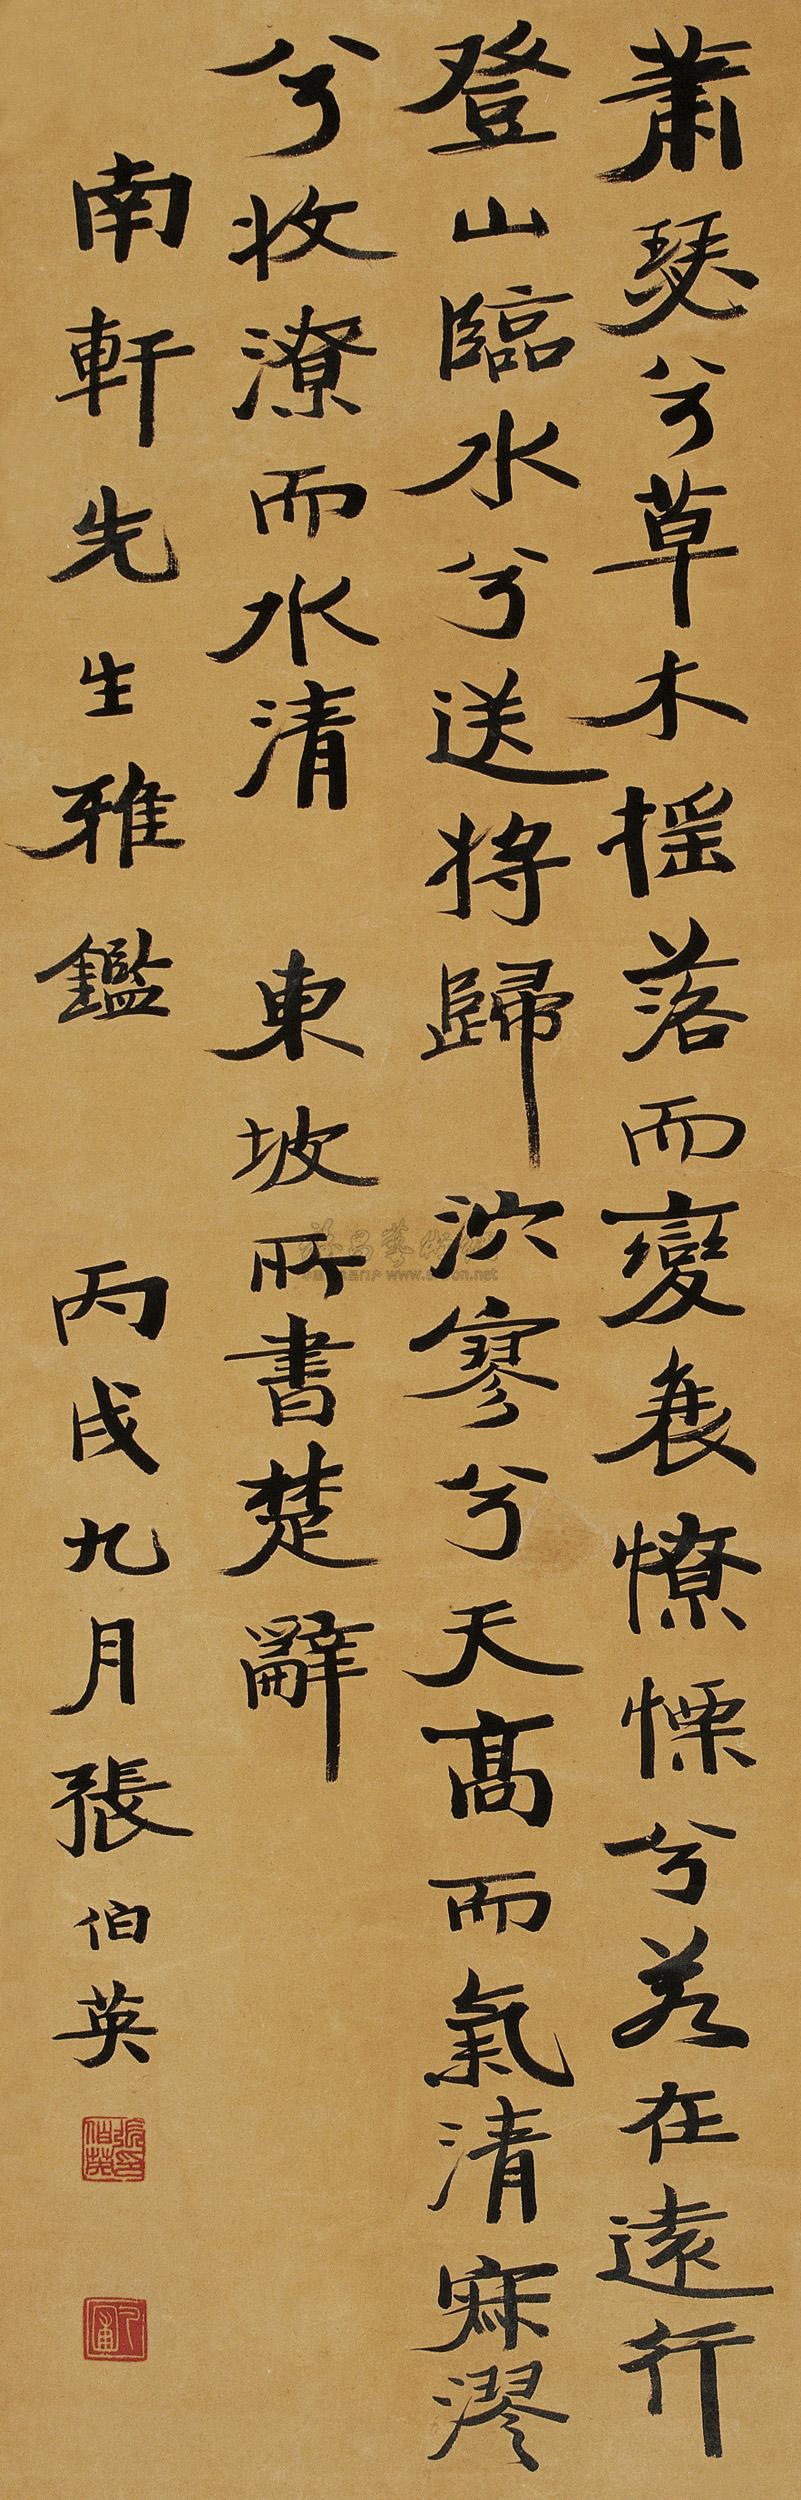 蕭瑟兮草木摇落而變衰憭慄兮若在遠行
登山臨水兮送將歸泬寥兮天高而氣清寂漻
兮收潦而水清 東坡所書楚辭
南軒先生雅鑑 丙戌九月張伯英
張伯英印
www.artron.net